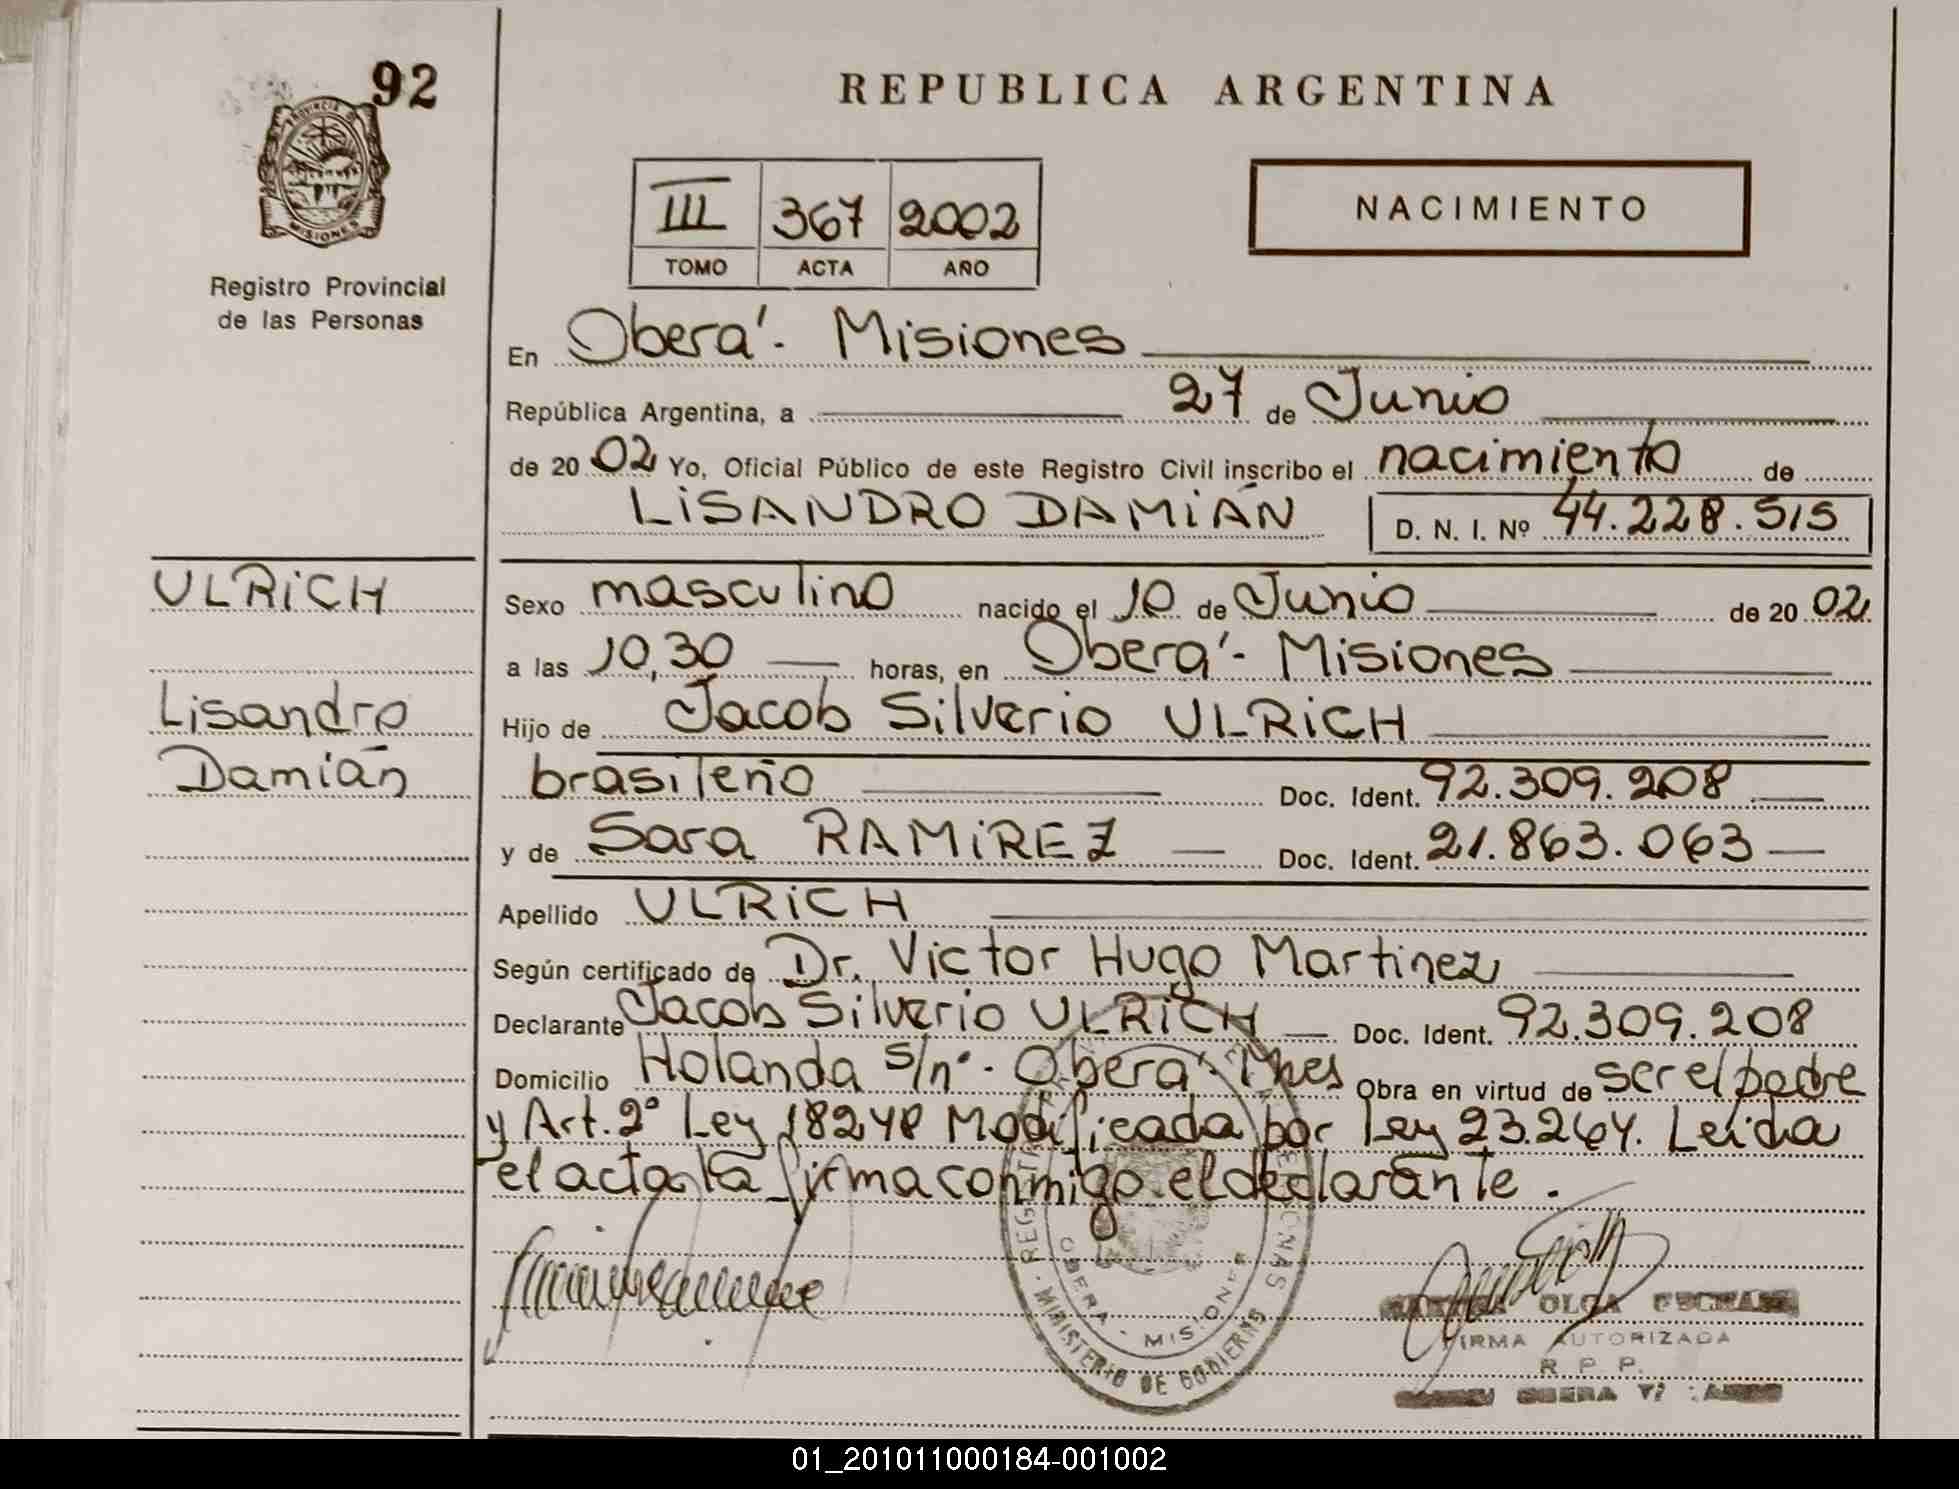 92
REPUBLICA ARGENTINA
PROVINCIA DE
MISIONES
Registro Provincial
de las Personas
III 367 2002
TOMO ACTA AÑO
NACIMIENTO
En Oberá - Misiones
República Argentina, a 27 de Junio
de 2002 Yo, Oficial Público de este Registro Civil inscribo el nacimiento de
LISANDRO DAMIÁN D. N. I. Nº 44.228.515
ULRICH
Lisandro
Damián
Sexo masculino nacido el 10 de Junio de 2002
a las 10,30 horas, en Oberá - Misiones
Hijo de Jacob Silverio ULRICH
brasileño Doc. Ident. 92.309.208
y de Sara RAMIREZ Doc. Ident. 21.863.063
Apellido ULRICH
Según certificado de Dr. Victor Hugo Martinez
Declarante Jacob Silverio ULRICH Doc. Ident. 92.309.208
Domicilio Holanda s/nº - Oberá - Mnes Obra en virtud de ser el padre
y Art. 2º Ley 18248 Modificada por Ley 23.264. Leída
el acta la firma conmigo el declarante.
OBERA - MISIONES
MINISTERIO DE GOBIERNO
OLGA
FIRMA AUTORIZADA
R. P. P.
OBERA
01_201011000184-001002